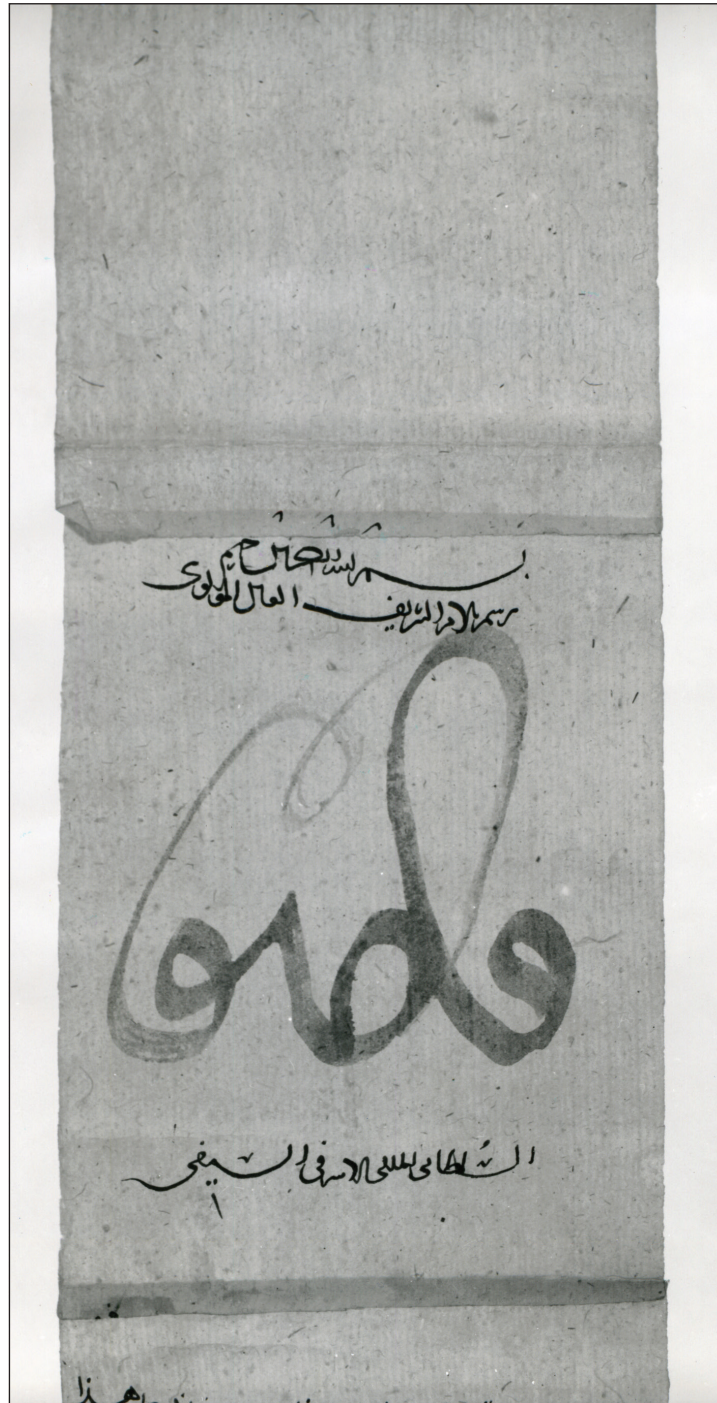 بسم الله الرحمن الرحيم
رسم بالامر الشريف العالى المولوى
قانصوه
السلطانى الملكى الاشرفى السيفى
هذا